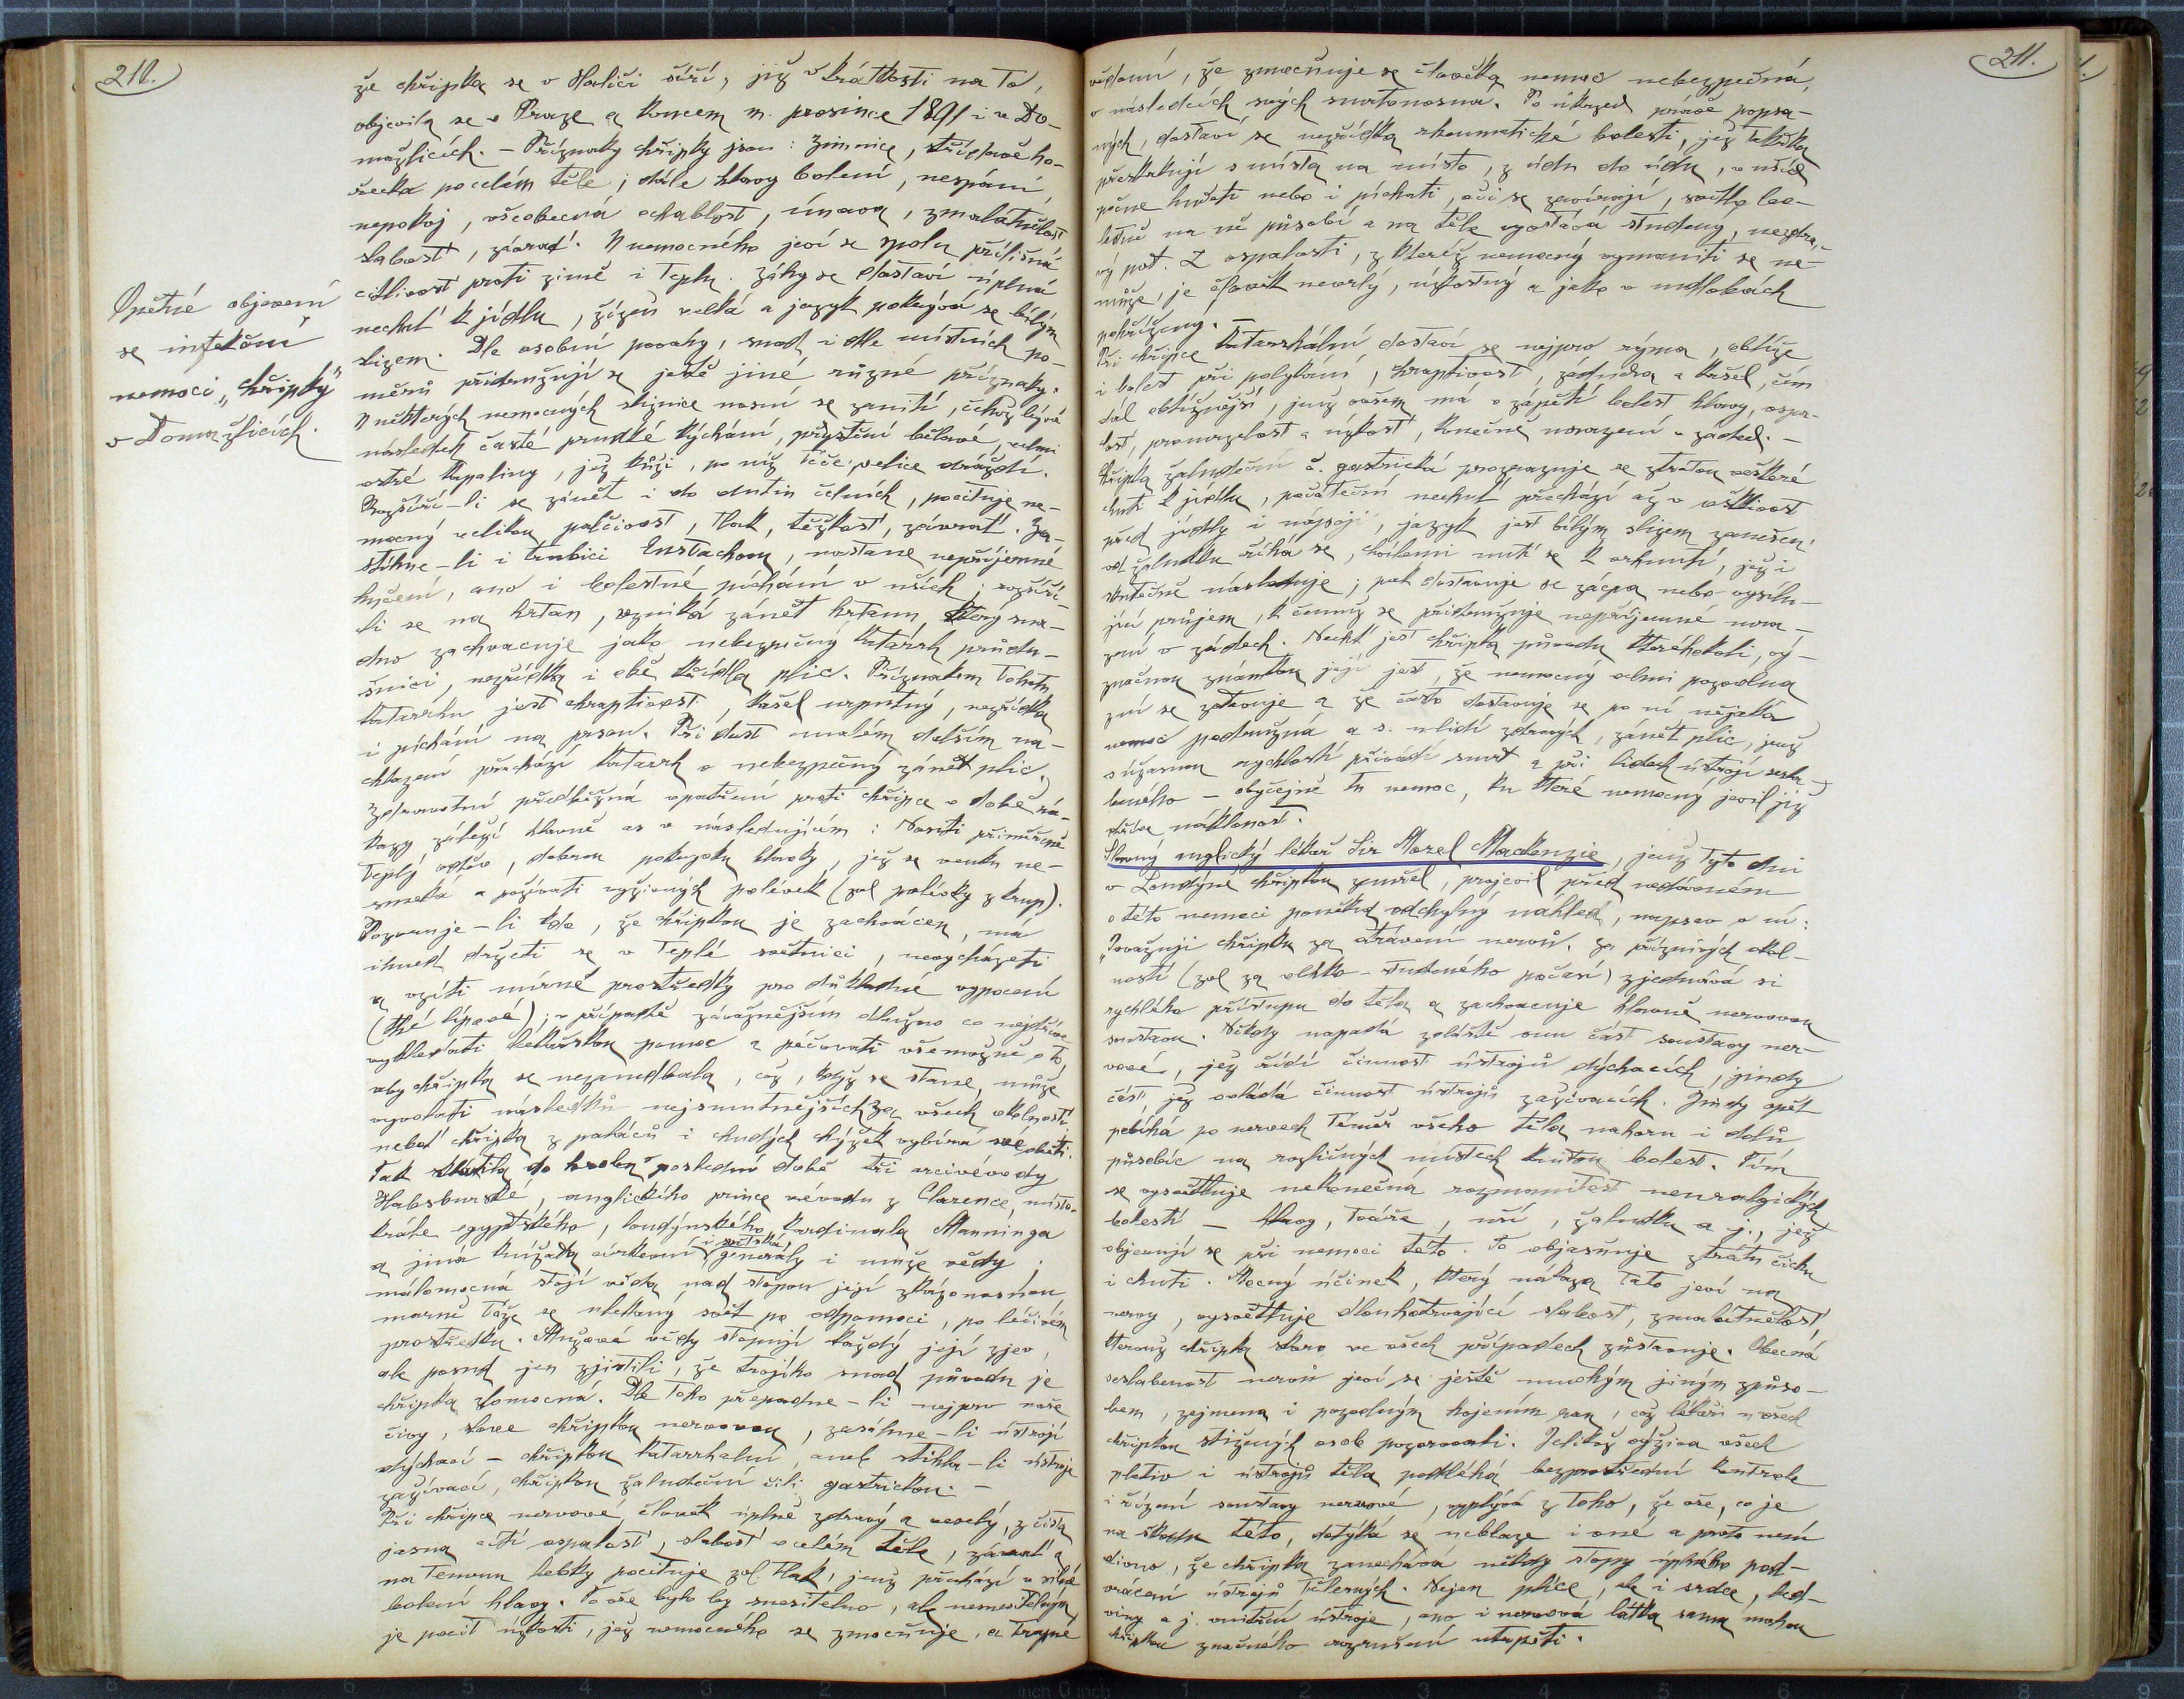 210.
že chřipka se v Haliči šíří, již v krátkosti na to,
objevila se v Praze a koncem m. prosince 1891 i v Do-
mažlicích. – Příznaky chřipky jsou: Zimnice, střídavě ho-
rečka po celém těle; dále hlavy bolení, nespání
nepokoj, všeobecná ochablost, únava, zmalátnělost
slabost, závrať. U nemocného jeví se spolu přílišná
citlivost proti zimě i teplu. Záhy se dostaví úplná
nechuť k jídlu, žízeň velká a jazyk pokrývá se bílým
slizem. Dle osobní povahy, snad i dle místních po-
měrů přidružují se ještě jiné různé příznaky.
U některých nemocných sliznice nosní se zanítí, čehož bývá
následek časté prudké kýchání, prýštění bělavé, velmi
ostré kapaliny, jež kůži, po níž teče velice dráždí.
Rozšíří-li se zánět i do dutin čelních, pociťuje ne-
mocný velikou palčivost, tlak, těžkost, závrať. Za-
stihne-li i trubici Eustachovu, nastane nepříjemné
hučení, ano i bolestné píchání v uších; rozšíří-
li se na hrtan, vzniká zánět hrtanu, který sna-
dno zachvacuje jako nebezpečný katarrh průdu-
šnici, nezřídka i obě křídla plic. Příznakem tohoto
katarrhu jest chraptivost, kašel urputný, nezřídka
i píchání na prsou. Při dost malém dalším na-
chlazení přechází katarrh v nebezpečný zánět plic.
Zdravotní předběžná opatření proti chřipce v době ná-
kazy záleží hlavně as v následujícím: Nositi přiměřeně
teplý oděv, dobrou pokrývku hlavky, jež se venku ne-
smeká a požívati výživných polévek (zvl. polévky z krup).
Pozoruje-li kdo, že chřipkou je zachvácen, má
ihned držeti se v teplé světnici, nevycházeti
a vzíti mírné prostředky pro důkladné vypocení
(thé lipové); v případě závažnějším dlužno co nejdříve
vyhledati lékařskou pomoc a pečovati všemožně o to
aby chřipka se nezanedbala, což, když se stane, může
vyvolati následků nejsmutnějších za všech okolností
neboť chřipka z paláců i chudých chýžek vybírá své oběti.
Tak sklátila do hrobu v poslední době tři arcivévody
Habsburské, anglického prince vévodu z Clarence, místo-
krále egyptského, londýnského kardinala Manninga
a jiná knížata církevní i světská, generály i muže vědy;
málomocná stojí věda nad stopou její zkázonosnou,
marně táže se ulekaný svět po odpomoci, po léčivém
prostředku. Mužové vědy stopují každý její zjev,
ale posud jen zjistili, že trojího snad původu je
chřipka zlomocná. Dle toho přepadne-li nejprv naše
čivy, slove chřipkou nervovou, zasáhne-li ústrojí
dýchací – chřipkou katarrhalní, aneb stihla-li ústroje
zažívací, chřipkou žaludeční čili gastrickou. –
Při chřipce nervové, člověk úplně zdravý a veselý, z čista
jasna cítí ospalost, slabost v celém těle, závrať a
na temenu lebky pociťuje zvl. tlak, jenž přechází v silné
bolení hlavy. To vše bylo by snesitelno, ale nesnesitelným
je pocit úzkosti, jež nemocného se zmocňuje, a trapné
Opětné objevení
se infekční
nemoci „chřipky“
v Domažlicích.
211.
vědomí, že zmocňuje se člověka nemoc nebezpečná,
v následcích svých smrtonosná. Po úkazech právě popsa-
ných, dostaví se nezřídka rheumatické bolesti, jež takřka
přeskakují s místa na místo, z údu do údu, v uších
počne hučeti nebo i píchati, oči se zavírají, světlo bo-
lestně na ně působí a na těle vyvstává studený, nezdra-
vý pot. Z ospalosti, z kteréž nemocný vymaniti se ne-
může, je člověk nevrlý, úzkostný a jako v mdlobách
pohřížený. –
Při chřipce katarrhální dostaví se nejprv rýma, obtíže
i bolest při polykání, chraptivost, záducha a kašel, čím
dál obtížnější, jenž ovšem má v zápětí bolest hlavy, ospa-
lost, promrzelost a úzkost, konečně mrazení v zádech. –
Chřipka žaludeční č. gastrická prozrazuje se ztrátou veškeré
chuti k jídlu, počáteční nechuť přechází až v ošklivost
před jídly i nápoji, jazyk jest bílým slizem zanešen
od žaludku říhá se, chvílemi nutí se k vrhnutí, jež i
skutečně následuje; pak dostavuje se zácpa nebo vysilu-
jící průjem, k čemuž se přidružuje nepříjemné mra-
zení v zádech. Nechť jest chřipka původu kteréhokoli, vý-
značnou známkou její jest, že nemocný velmi pozvolna
zní se zotavuje a že často dostavuje se po ní nějaká
nemoc podružná a s. u lidí zdravých, zánět plic, jenž
s úžasnou rychlostí přivádí smrt a při lidech ústrojí sesla-
beného – obyčejně tu nemoc, ku které nemocný jevil již
dříve náklonost.
Slavný anglický lékař Sir Morel Mackenzie, jenž tyto dni
v Londýně chřipkou zemřel, projevil před nedávnem
o této nemoci poněkud odchylný náhled, napsav o ní:
„Považuji chřipku za otrávení nervů. Za příznivých okol-
ností (zvl. za vlhko-studeného počasí) zjednává si
rychlého přístupu do těla a zachvacuje hlavně nervovou
soustavu. Někdy napadá zvláště onu část soustavy ner-
vové, jež řídí činnost ústrojů dýchacích, jindy
část, jež ovládá činnost ústrojů zažívacích. Jindy opět
pobíhá po nervech téměř všeho těla nahoru i dolů
působíc na rozličných místech krutou bolest. Tím
se vysvětluje nekonečná rozmanitost neuralgických
bolestí – hlavy, tváře, uší, žaludku a j., jež
objevují se při nemoci této. To objasňuje ztrátu čichu
i chuti. Mocný účinek, který nákaza tato jeví na
nervy, vysvětluje dlouhotrvající slabost, zmalátnělost,
kterouž chřipka skoro ve všech případech zůstavuje. Obecná
seslabenost nervů jeví se ještě mnohým jiným způso-
bem, zejmena i pozvolným hojením ran, což lékaři u všech
chřipkou stížených osob pozorovali. Jelikož výživa všech
pletiv i ústrojů těla podléhá bezprostřední kontrole
i řízení soustavy nervové, vyplývá z toho, že vše, co je
na škodu této, dotýká se neblaze i oné a proto není
divno, že chřipka zanechává někdy stopy úplného pod-
vrácení ústrojů tělesných. Nejen plíce, ale i srdce, led-
viny a j. vnitřní ústroje, ano i nervová látka sama mohou
chřipkou značného rozrušení utrpěti.